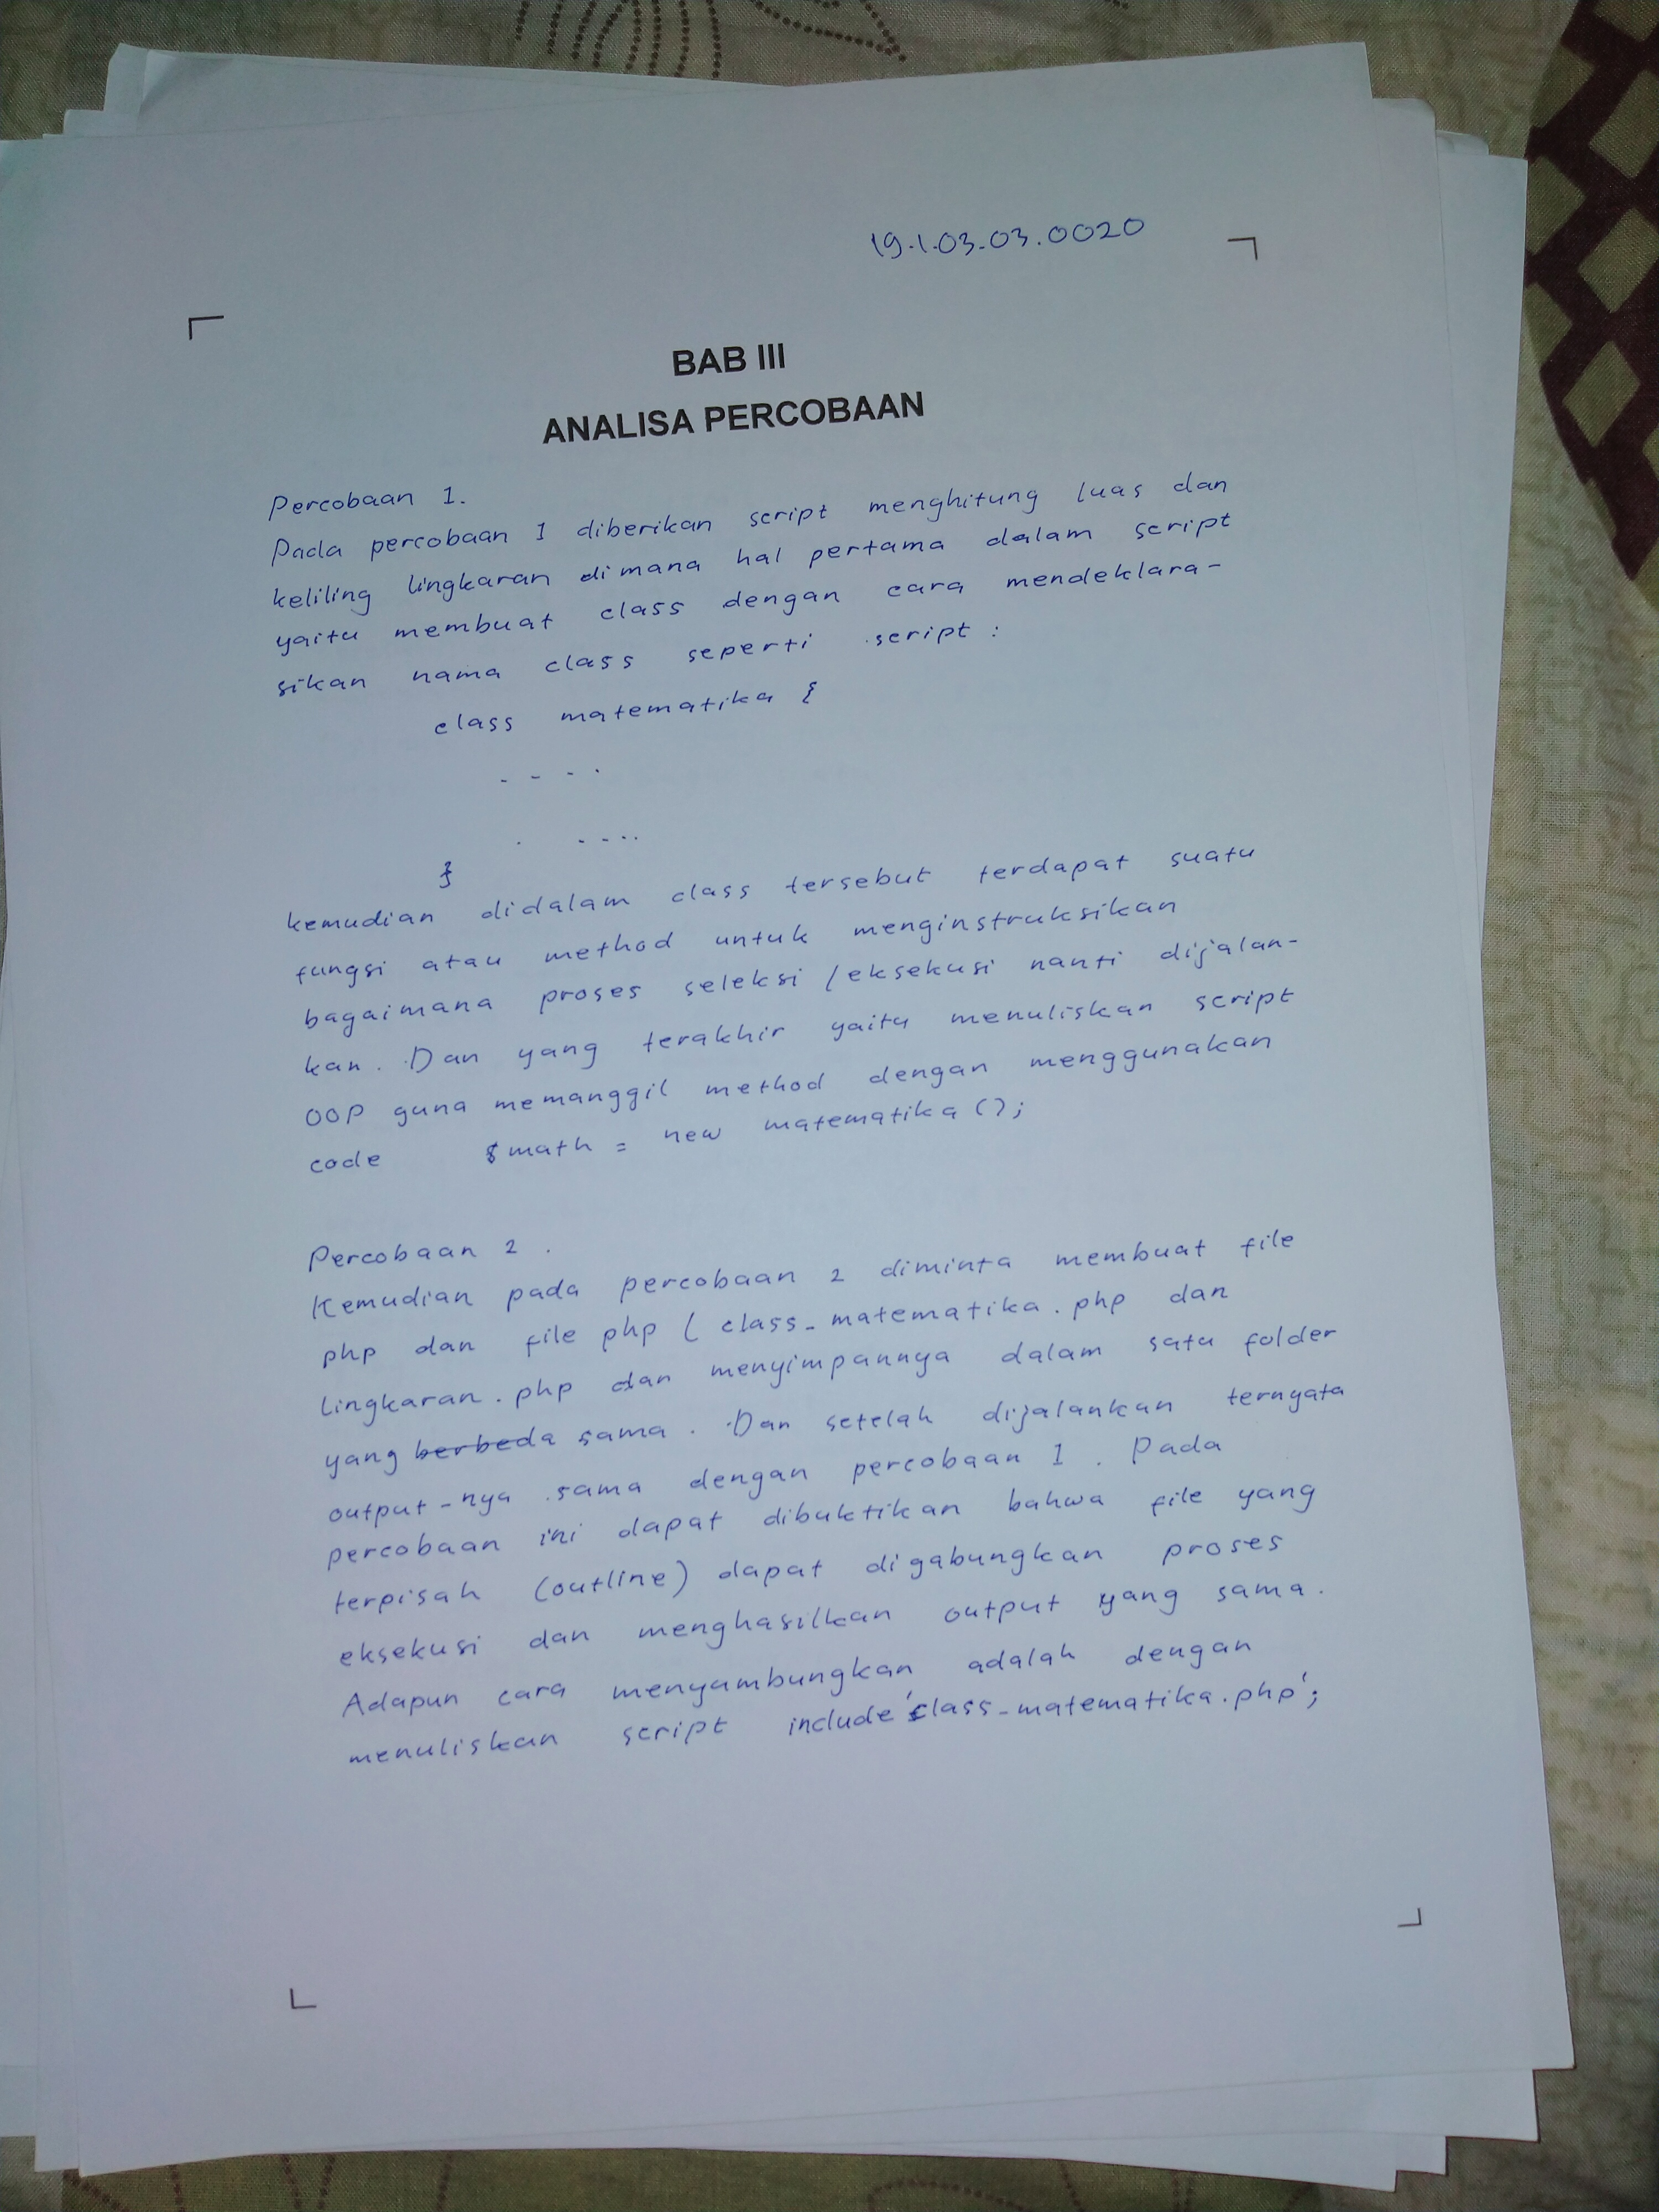 19.1.03.03.0020
BAB III
ANALISA PERCOBAAN
Percobaan 1.
Pada percobaan 1 diberikan script menghitung luas dan
keliling lingkaran dimana hal pertama dalam script
yaitu membuat class dengan cara mendeklara-
sikan nama class seperti script :
class matematika {
- - - .
. - - . .
}
kemudian didalam class tersebut terdapat suatu
fungsi atau method untuk menginstruksikan
bagaimana proses seleksi / eksekusi nanti dijalan-
kan. Dan yang terakhir yaitu menuliskan script
OOP guna memanggil method dengan menggunakan
code $math = new matematika ();
Percobaan 2 .
Kemudian pada percobaan 2 diminta membuat file
php dan file php ( class_matematika.php dan
lingkaran.php dan menyimpannya dalam satu folder
yang berbeda sama. Dan setelah dijalankan ternyata
output-nya sama dengan percobaan 1. Pada
percobaan ini dapat dibuktikan bahwa file yang
terpisah (outline) dapat digabungkan proses
eksekusi dan menghasilkan output yang sama.
Adapun cara menyambungkan adalah dengan
menuliskan script include 'class_matematika.php';